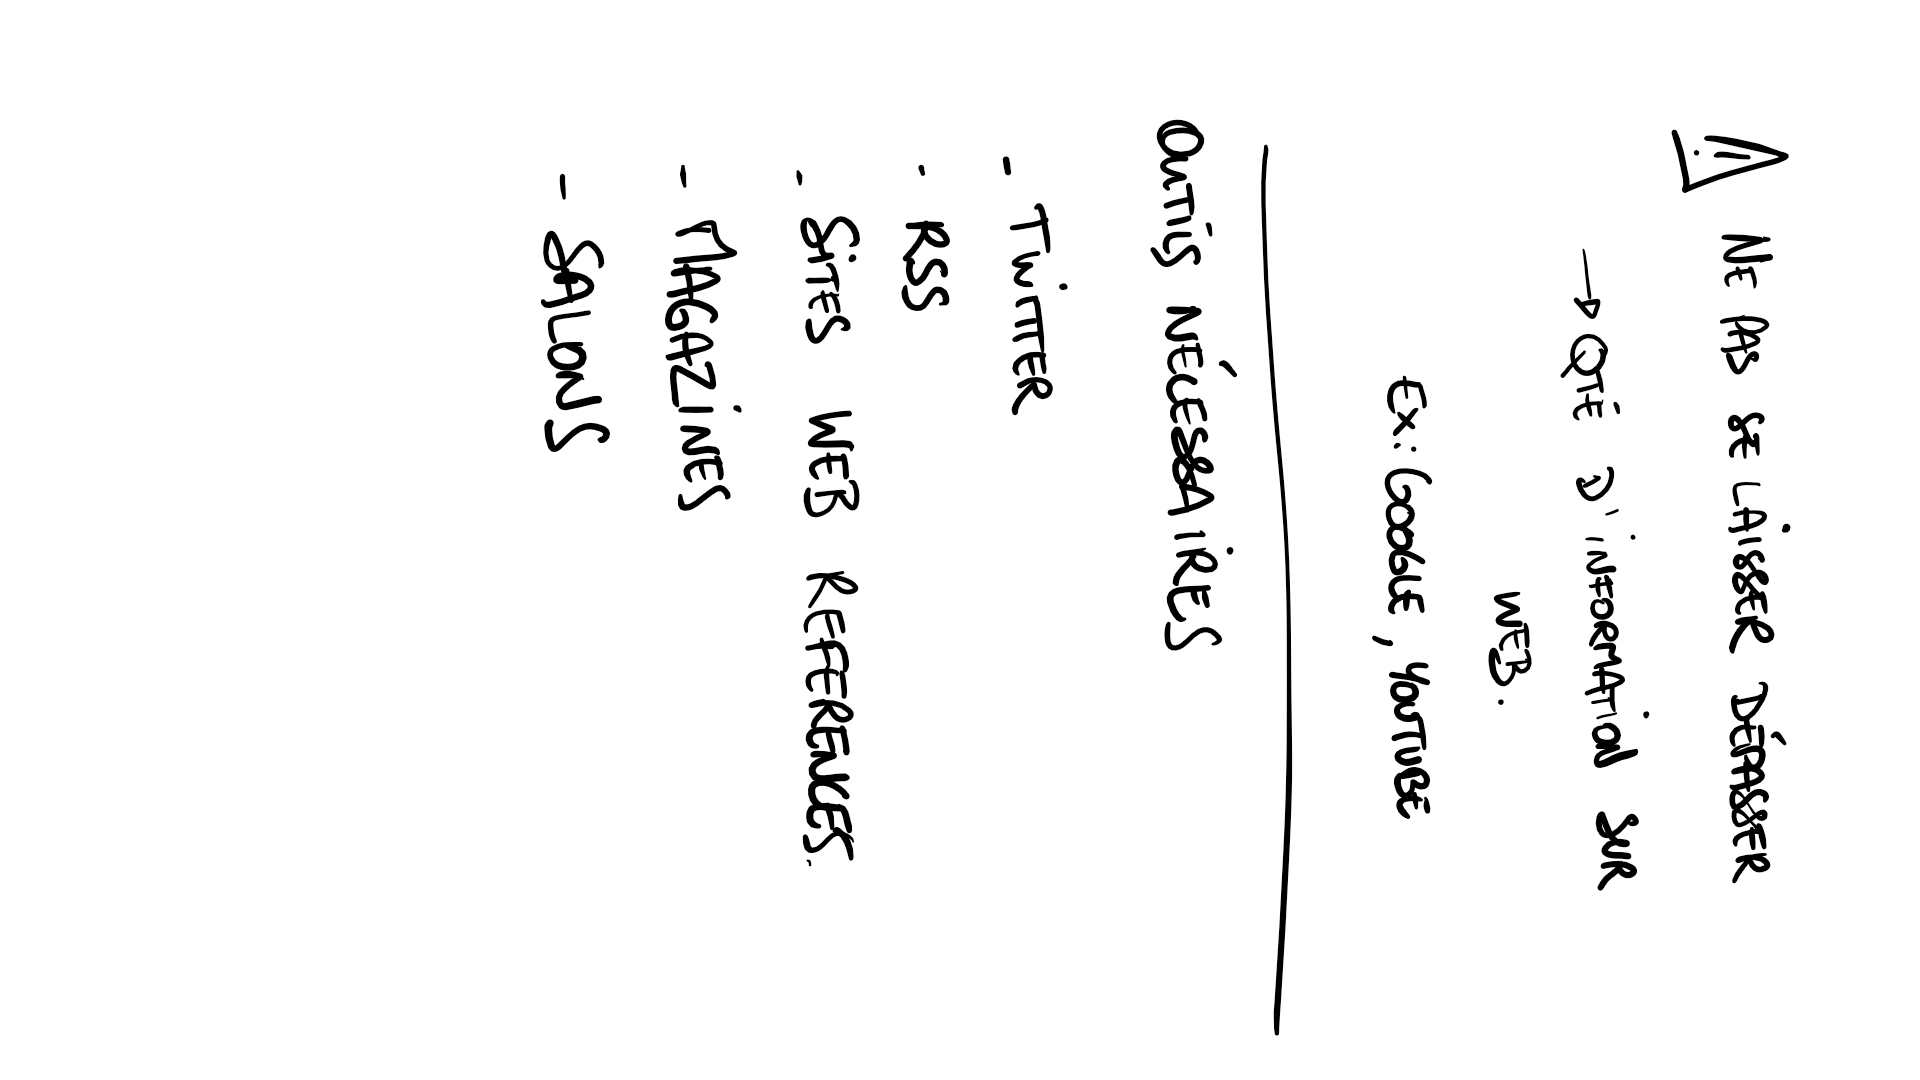 ! NE PAS SE LAISSER DÉPASSER
→ QTE D'INFORMATION SUR
WEB.
EX: GOOGLE, YOUTUBE
OUTILS NÉCESSAIRES
- TWITTER
- RSS
- SITES WEB REFERENCES.
- MAGAZINES
- SALONS